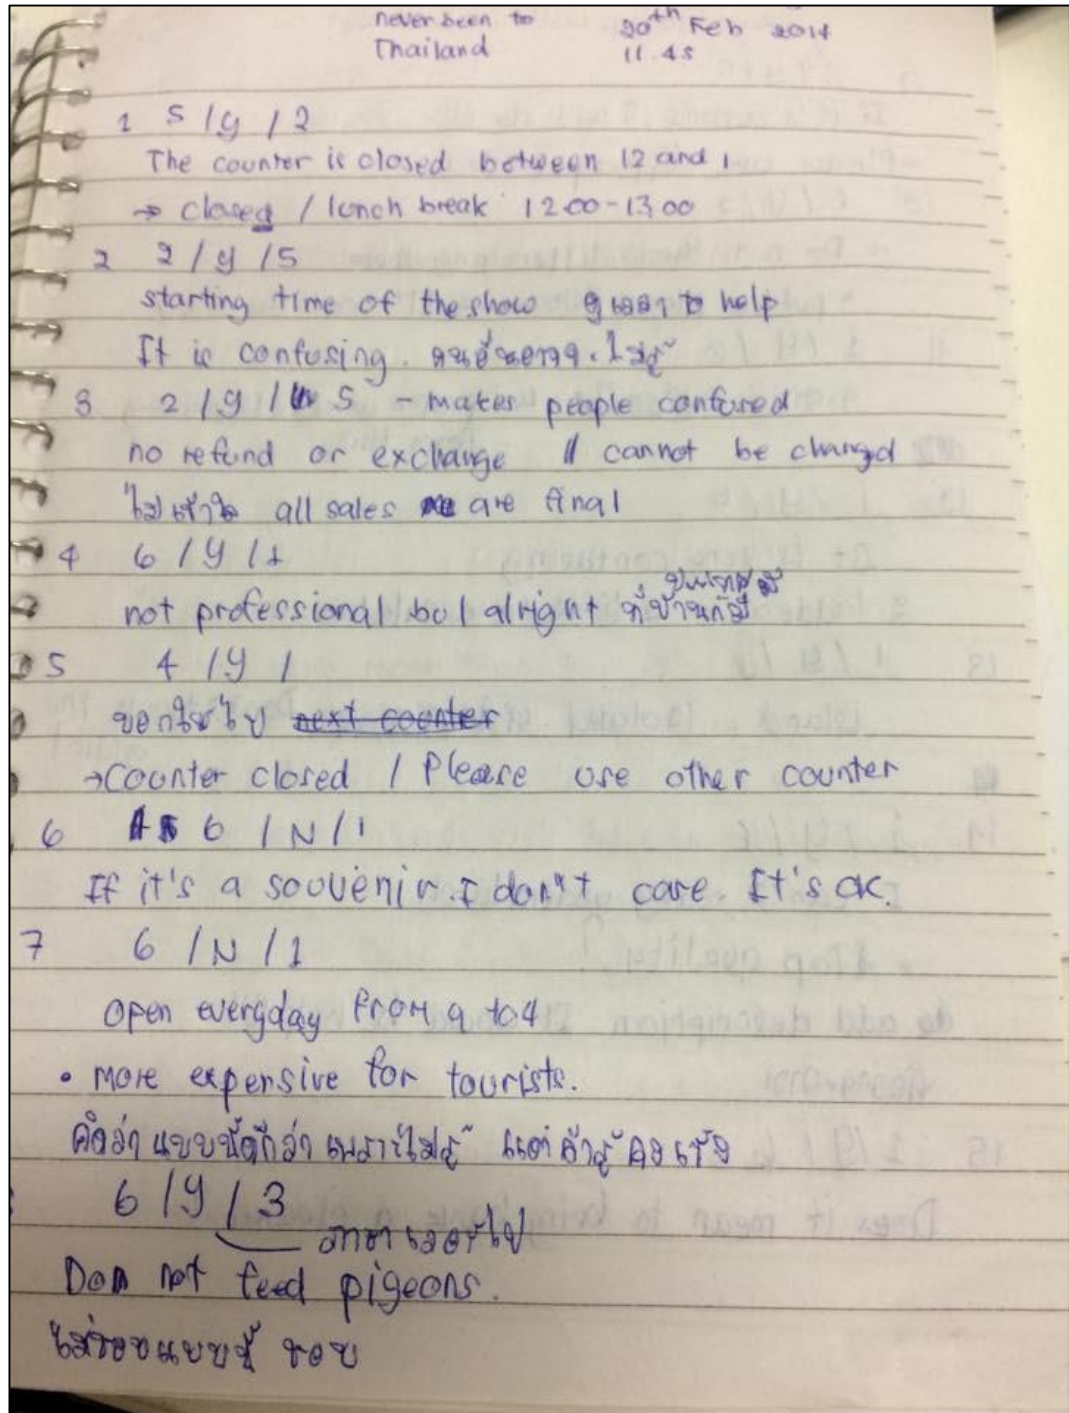 never been to 20th Feb 2014
Thailand 11.45
1 5 / y / 2
The counter is closed between 12 and 1
→ closed / lunch break 12.00-13.00
2 2 / y / 5
starting time of the show ดูเวลา to help
It is confusing. คนอื่นอาจจะไม่รู้
3 2 / y / 5 - makes people confused
no refund or exchange // cannot be changd
ไม่เข้าใจ all sales are final
4 6 / y / 1
not professional but alright ที่บ้านก็มี
5 4 / y /
บอกให้ไป next counter
→ Counter closed / Please use other counter
6 6 / N / 1
If it's a souvenir. I don't care. It's ok.
7 6 / N / 1
open everyday from 9 to 4
• more expensive for tourists.
คิดว่าแบบนี้ดีกว่า เพราะไม่รู้ แต่ถ้ารู้คง
6 / y / 3
Don not feed pigeons.
ไม่ชอบแบบนี้ ชอบ